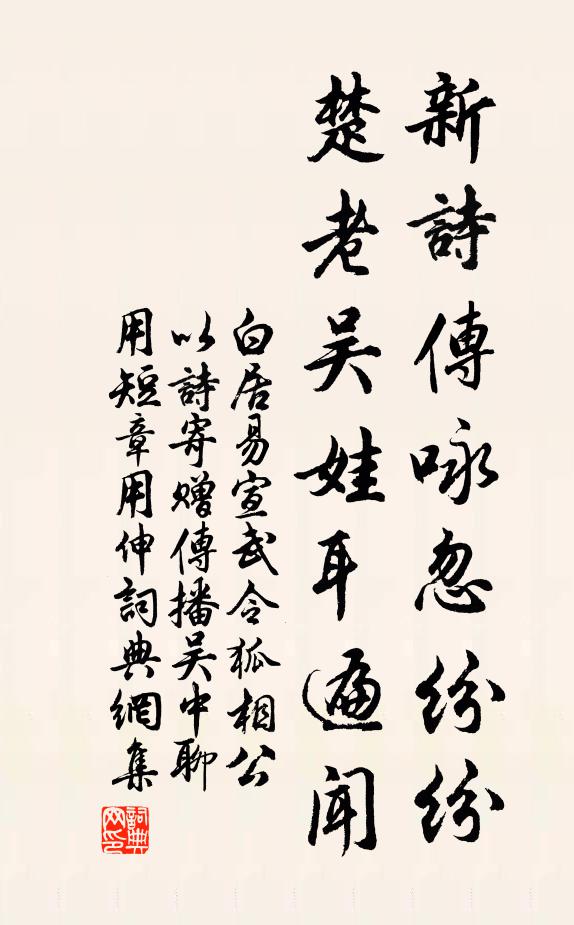 新詩傳咏忽紛紛
楚老吴娃耳遍聞
白居易宣武令狐相公
以詩寄贈傳播吴中聊
用短章用伸詞典網集
詞典
网印